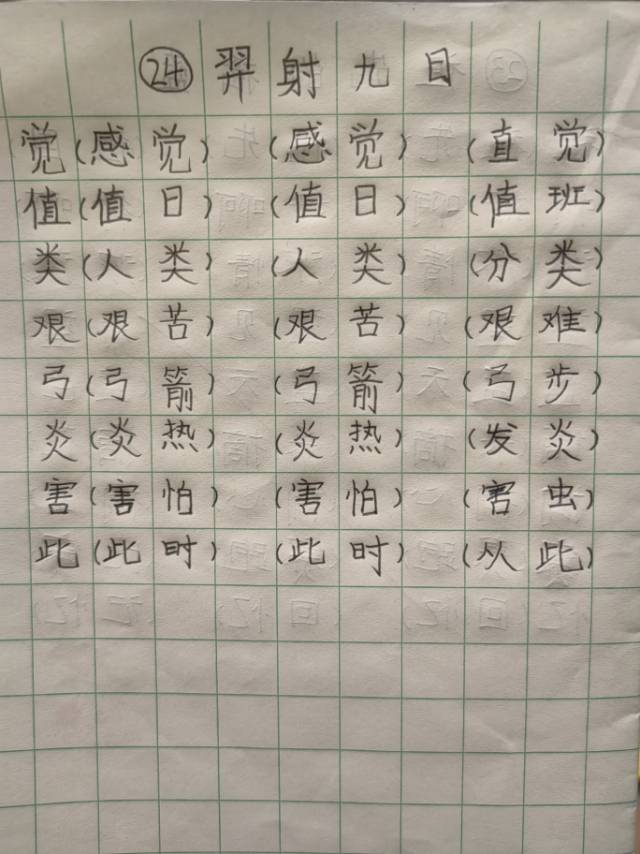 ㉔ 羿射九日
觉(感觉) (感觉) (直觉)
值(值日) (值日) (值班)
类(人类) (人类) (分类)
艰(艰苦) (艰苦) (艰难)
弓(弓箭) (弓箭) (弓步)
炎(炎热) (炎热) (发炎)
害(害怕) (害怕) (害虫)
此(此时) (此时) (从此)